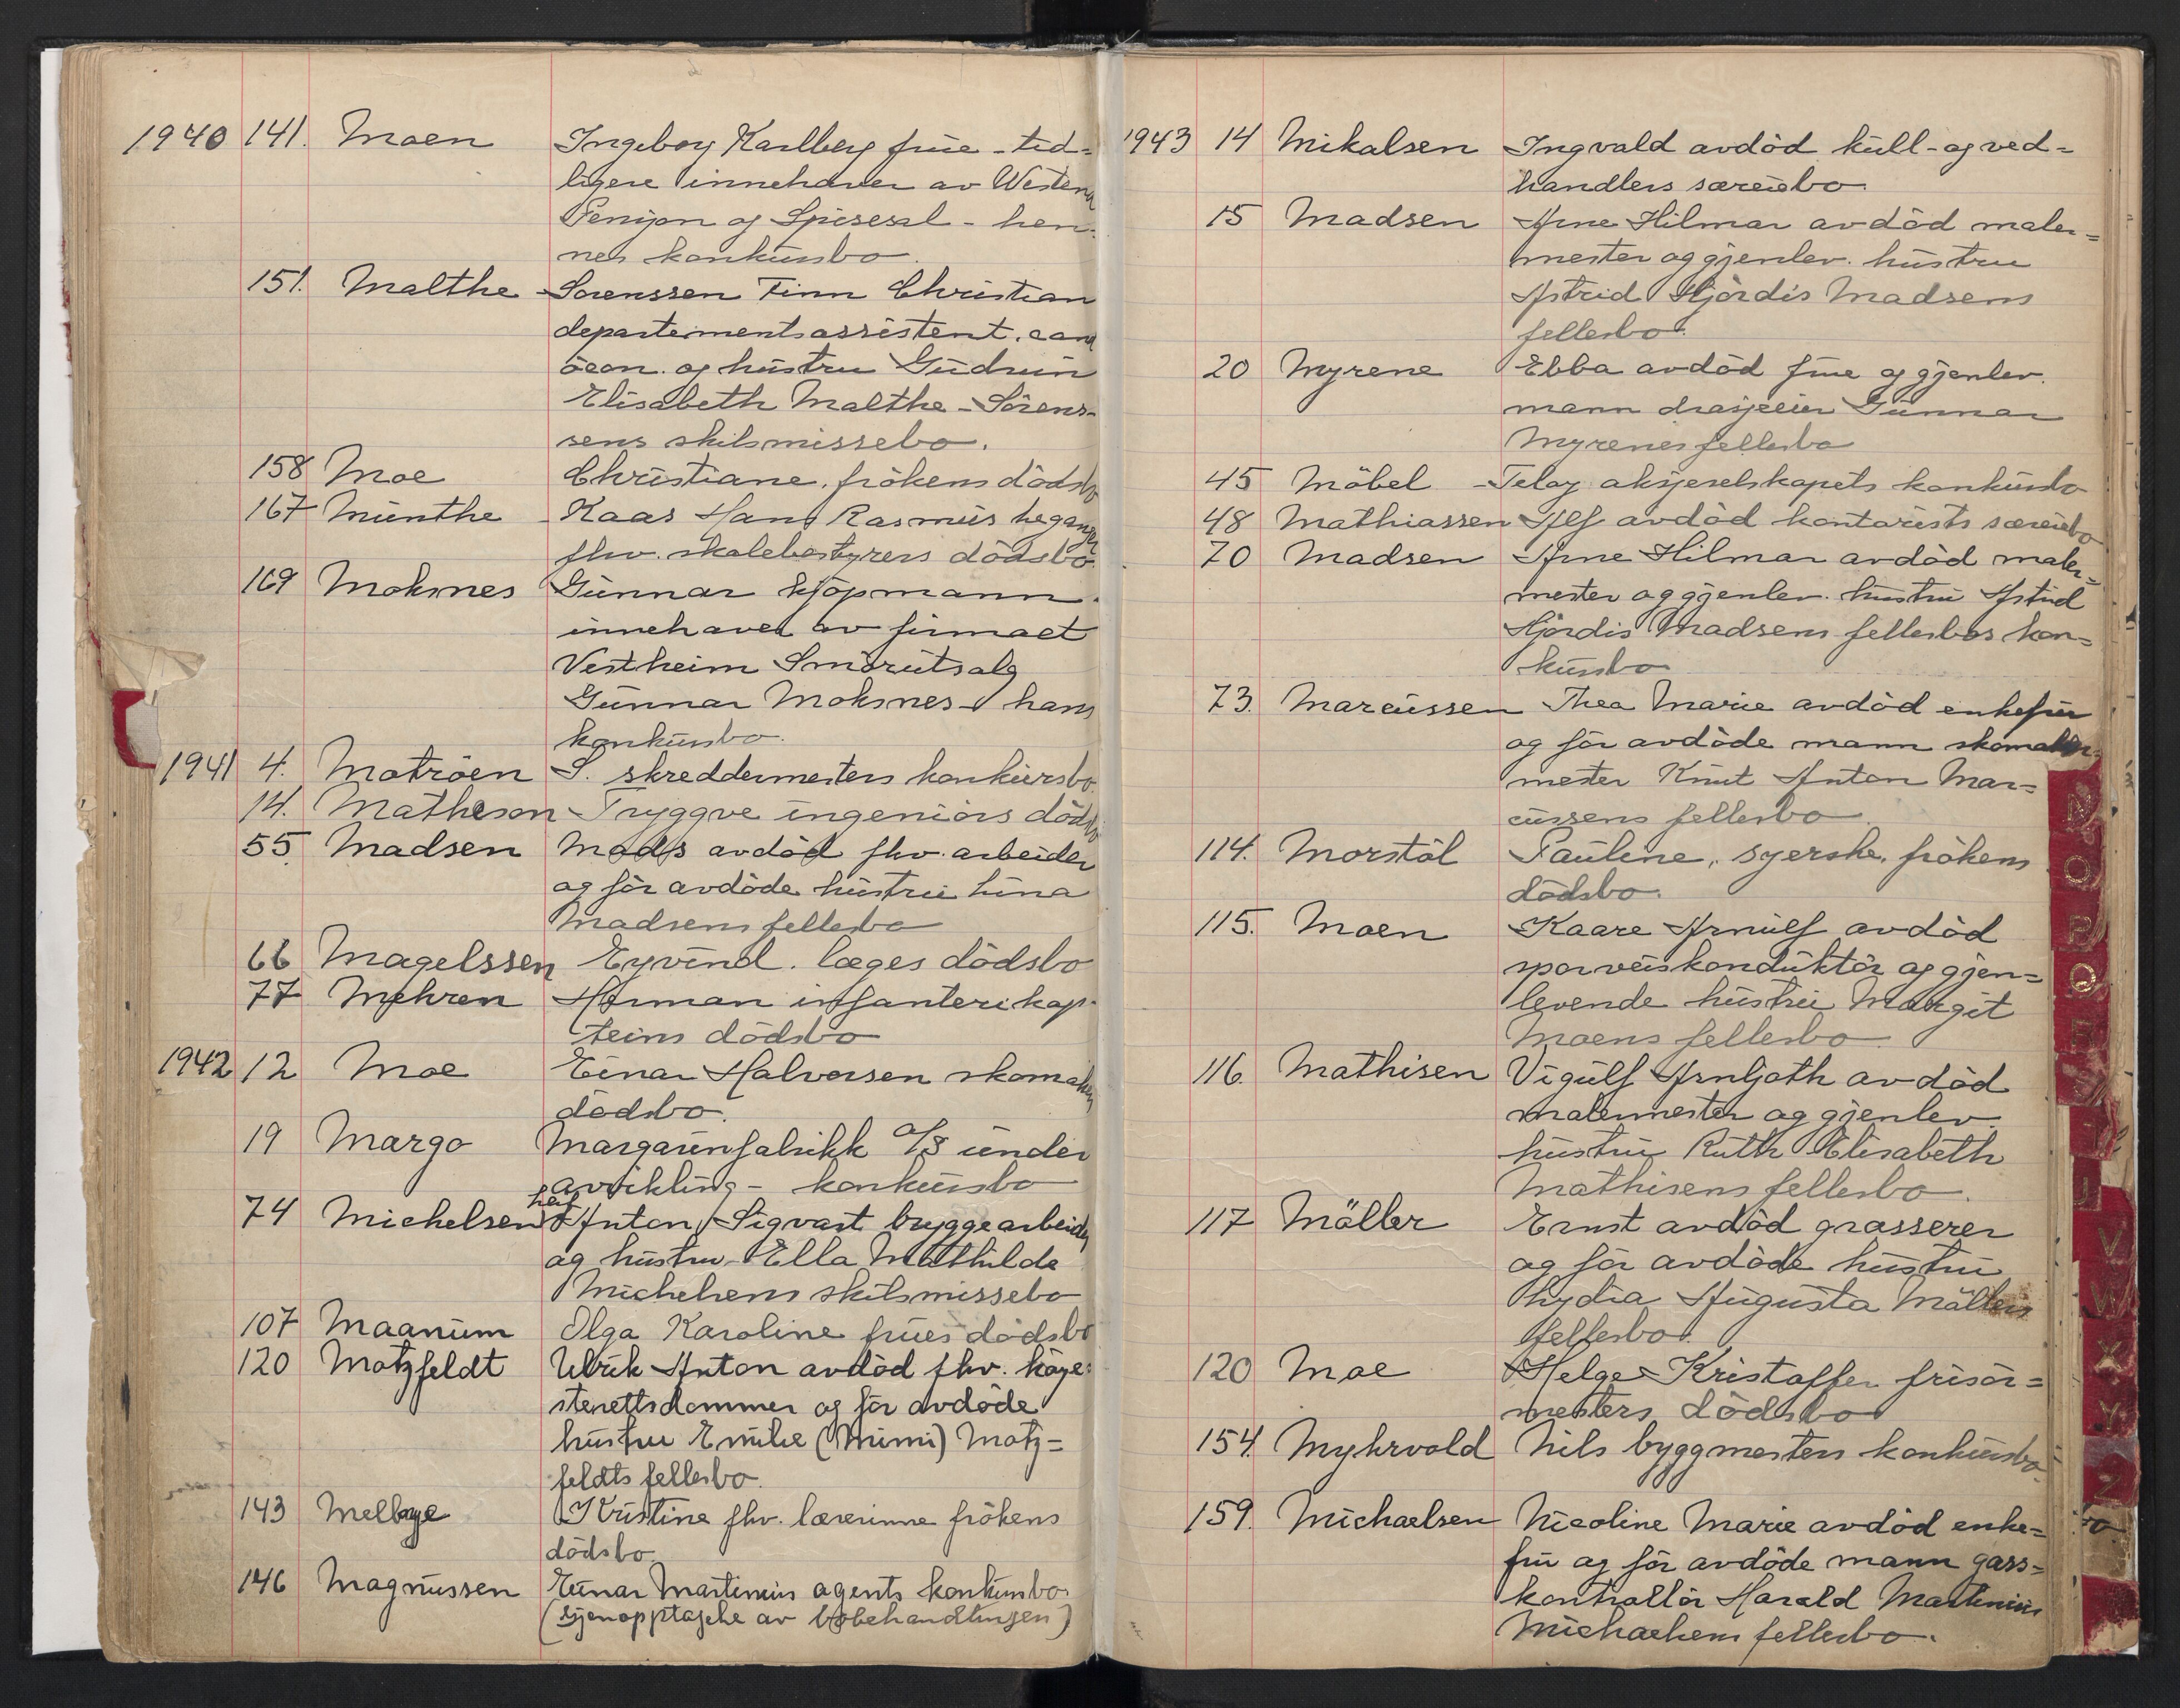 1940 141. Moen Ingeborg Karlberg frue - tid=
ligere innehaver av Westend
Pensjon og Spisesal - hen=
nes konkursbo.
151. Malthe - Sørenssen Finn Christian
departementsassistent. cand
öcon. og hustru Gudrun
Elisabeth Malthe - Sörens-
sens skilsmissebo.
158 Moe Christiane. frökens dödsbo
167 Munthe - Kaas Hans Rasmus
fhv. skolebestyrers dödsbo.
169 Moksnes Gunnar kjöpmann.
innehaver av firmaet
Vestheim Smörutsalg
Gunnar Moksnes - hans
konkursbo.
1941 4. Moträen S. skreddermesters konkursbo.
14. Matheson - Tryggve ingeniörs dödsbo
55. Madsen Mads avdöd fhv. arbeider
og för avdöde hustru Lina
Madsens fellesbo
66 Magelssen Eyvind. læges dödsbo
77 Mehren Herman infanterikap-
teins dödsbo
1942 12 Moe Einar Halvorsen skomakers
dödsbo.
19 Margo Margarinfabrikk A/S under
avvikling - konkursbo
74 Michelsen Leif Anton Sigvart bryggearbeider
og hustru Ella Mathilde
Michelsens skilsmissebo
107 Maanum Olga Karoline frues dödsbo
120 Motzfeldt Ulrik Anton avdöd fhv. höye=
sterettsdommer og för avdöde
hustru Emilie (Mimi) Motz=
feldts fellesbo.
143 Melbye Kristine fhv. lærerinne frökens
dödsbo.
146 Magnussen Einar Martinius agents konkursbo
(Gjenopptagelse av bobehandlingen)
1943 14 Mikalsen Ingvald avdöd kull- og ved=
handlers særeiebo.
15 Madsen Arne Hilmar avdöd maler=
mester og gjenlev. hustru
Astrid Hjördis Madsens
fellesbo.
20 Myrene Ebba avdöd frue og gjenlev.
mann drosjeeier Gunnar
Myrenes fellesbo
45 Möbel - Telog aksjeselskapets konkursbo
48 Mathiassen Alf avdöd kontorists særeiebo
70 Madsen Arne Hilmar avdöd maler=
mester og gjenlev. hustru Astrid
Hjördis Madsens fellesbos kon=
kursbo
73. Marcussen Thea Marie avdöd enkefru
og för avdöde mann skomaker=
mester Knut Anton Mar=
cussens fellesbo.
114. Morstöl Pauline, syerske, frökens
dödsbo.
115. Moen Kaare Arnulf avdöd
sporveiskonduktör og gjen=
levende hustru Margit
Moens fellesbo.
116. Mathisen Vigulf Arnljoth avdöd
malermester og gjenlev.
hustru Ruth Elisabeth
Mathisens fellesbo.
117 Möller Ernst avdöd grosserer
og för avdöde hustru
Lydia Augusta Möllers
fellesbo.
120 Moe Helge Kristoffer frisör=
mesters dödsbo
154. Myhrvold Nils byggmesters konkursbo.
159. Michaelsen Nicoline Marie avdöd enke=
fru og för avdöde mann gass=
kontrollör Harald Martinius
Michaelsens fellesbo.
N
O
P
Q
R
S
T
U
V
W
X
Y
Z